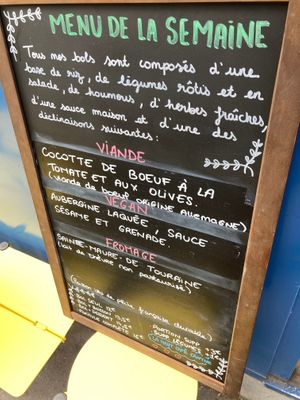 MENU DE LA SEMAINE
Tous nos bols sont composés d'une
base de riz, de légumes rôtis et en
salade, de houmous, d'herbes fraîches,
d'une sauce maison et d'une des
déclinaisons suivantes:
VIANDE
COCOTTE DE BOEUF À LA
TOMATE ET AUX OLIVES.
(viande de boeuf origine allemagne)
VEGAN
AUBERGINE LAQUÉE, SAUCE
SÉSAME ET GRENADE.
FROMAGE
SAINTE-MAURE DE TOURAINE
(lait de chèvre non pasteurisé)
BOL SEUL 12€
PORTION SUPP
SUPP LÉGUMES